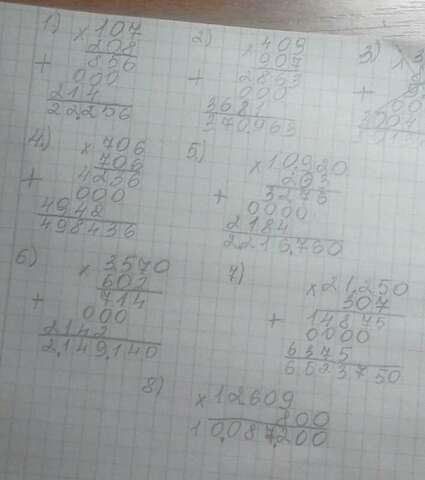 1) × 107
208
+ 856
000
214
22.256
2) × 409
907
+ 2863
000
3681
370963
3) ×
+
4) × 706
706
+ 4236
000
4948
498436
5) × 10920
203
+ 3276
0000
2184
2216.760
6) × 3570
602
+ 714
000
2142
2.149.140
7) × 21250
307
+ 14875
0000
6375
6523750
8) × 12609
800
10.087.200